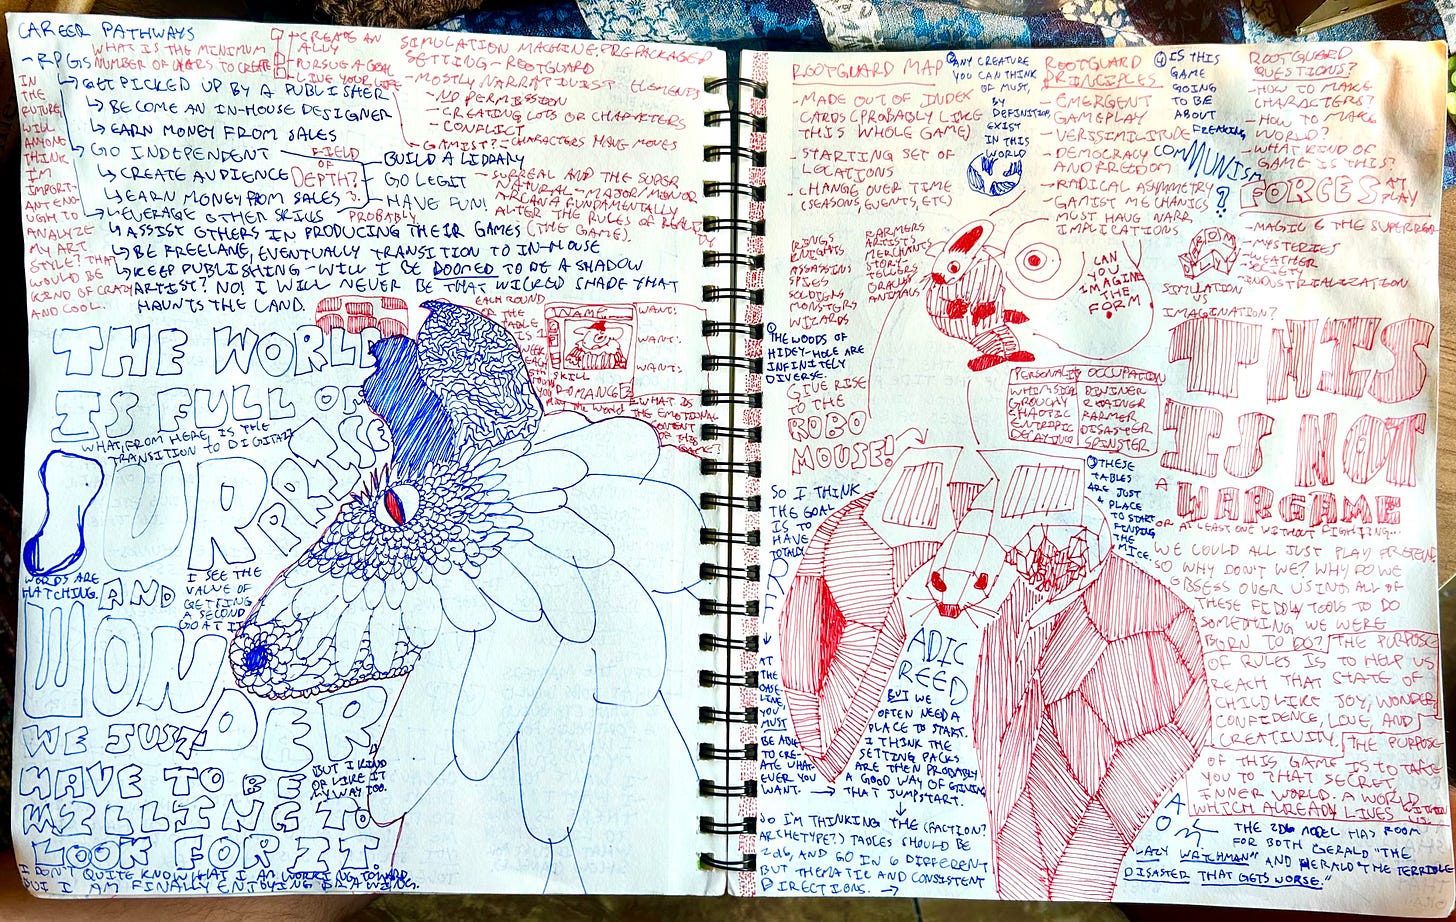 CAREER PATHWAYS
- RPGS
WHAT IS THE MINIMUM
NUMBER OF USERS TO CREATE
CREATE AN
ALLY
PURSUE A GOAL
LIVE YOUR LIFE
↳ GET PICKED UP BY A PUBLISHER
↳ BECOME AN IN-HOUSE DESIGNER
↳ EARN MONEY FROM SALES
↳ GO INDEPENDENT
↳ CREATE AUDIENCE
↳ EARN MONEY FROM SALES
FIELD
OF
DEPTH?
- BUILD A LIBRARY
- GO LEGIT
- HAVE FUN!
↳ LEVERAGE OTHER SKILLS
PROBABLY
↳ ASSIST OTHERS IN PRODUCING THEIR GAMES
↳ BE FREELANE, EVENTUALLY TRANSITION TO IN-HOUSE
↳ KEEP PUBLISHING - WILL I BE DOOMED TO BE A SHADOW
ARTIST? NO! I WILL NEVER BE THAT WICKED SHADE THAT
HAUNTS THE LAND.
IN
THE
FUTURE,
WILL
ANYONE
THINK
I'M
IMPORT-
ANT ENO-
UGH TO
ANALYZE
MY ART
STYLE? THAT
WOULD BE
KIND OF CRAZY
AND COOL.
SIMULATION MACHINE, PREPACKAGED
SETTING - ROOTGUARD
- MOSTLY NARRATIVIST ELEMENTS
- NO PERMISSION
- CREATING LOTS OF CHARACTERS
- CONFLICT
- GAMIST? - CHARACTERS HAVE MOVES
- SURREAL AND THE SUPER
NATURAL - MAJOR/MINOR
ARCANA FUNDAMENTALLY
ALTER THE RULES OF REALITY
(THE GAME).
EACH ROUND
NAME
SKILL
WANT:
WANT:
WANT:
ROMANCE?
WHAT IS
THE EMOTIONAL
THE WORLD
IS FULL OF
WHAT, FROM HERE, IS THE
TRANSITION TO DIGITAL
SURPRISE
WORDS ARE
HATCHING.
AND
I SEE THE
VALUE OF
GETTING
A SECOND
GO AT IT
WONDER
WE JUST
HAVE TO BE
WILLING TO
LOOK FOR IT.
BUT I KIND
OF LIKE IT
MY WAY TOO.
I DON'T QUITE KNOW WHAT I AM WORKING TOWARD,
BUT I AM FINALLY ENJOYING DRAWING.
ROOTGUARD MAP
- MADE OUT OF INDEX
CARDS (PROBABLY LIKE
THIS WHOLE GAME)
- STARTING SET OF
LOCATIONS
- CHANGE OVER TIME
(SEASONS, EVENTS, ETC)
ANY CREATURE
YOU CAN THINK
OF MUST,
BY
DEFINITION,
EXIST
IN THIS
WORLD
ROOTGUARD
PRINCIPLES
- EMERGENT
GAMEPLAY
- VERISSIMILITUDE
- DEMOCRACY
AND FREEDOM
- RADICAL ASYMMETRY
- GAMIST MECHANICS
MUST HAVE NARR.
IMPLICATIONS
IS THIS
GAME
GOING
TO BE
ABOUT
FREAKING
COMMUNISM
?
ROOTGUARD
QUESTIONS?
- HOW TO MAKE
CHARACTERS?
- HOW TO MAKE
WORLD?
- WHAT KIND OF
GAME IS THIS?
FORCES AT
PLAY
- MAGIC & THE SUPERREAL
- MYSTERIES
- WEATHER
- SOCIETY
- INDUSTRIALIZATION
SIMULATION
VS
IMAGINATION?
KINGS
KNIGHTS
ASSASSINS
SPIES
SOLDIERS
MONSTERS
WIZARDS
FARMERS
ARTISTS
MERCHANTS
STORY
TELLERS
ORACLES
ANIMALS
CAN
YOU
IMAGINE
THE
FORM
?
THE WOODS OF
HIDEY-HOLE ARE
INFINITELY
DIVERSE.
GIVE RISE
TO THE
ROBO
MOUSE!
PERSONALITY OCCUPATION
WHIMSICAL
GROUCHY
CHAOTIC
ENTROPIC
DECAYING
DIVINER
FARMER
DISASTER
SPINSTER
THESE
TABLES
ARE JUST
A PLACE
TO START
FINDING
THE
MICE.
THIS
IS NOT
A WARGAME
OR AT LEAST ONE WITHOUT FIGHTING...
WE COULD ALL JUST PLAY PRETEND.
SO WHY DON'T WE? WHY DO WE
OBSESS OVER USING ALL OF
THESE FIDDLY TOOLS TO DO
SOMETHING WE WERE
BORN TO DO? THE PURPOSE
OF RULES IS TO HELP US
REACH THAT STATE OF
CHILDLIKE JOY, WONDER,
CONFIDENCE, LOVE, AND
CREATIVITY. THE PURPOSE
OF THIS GAME IS TO TAKE
YOU TO THAT SECRET
INNER WORLD. A WORLD
WHICH ALREADY LIVES WITHIN
US.
SO I THINK
THE GOAL
IS TO
HAVE
TOTALLY
↓
AT
THE
BASE-
LINE,
YOU
MUST
BE ABLE
TO CRE-
ATE WHAT-
EVER YOU
WANT. →
ADIC
REED
BUT WE
OFTEN NEED A
PLACE TO START.
I THINK THE
SETTING PACKS
ARE THEN PROBABLY
A GOOD WAY OF GIVING
THAT JUMPSTART.
↓
SO I'M THINKING THE (FACTION?
ARCHETYPE?) TABLES SHOULD BE
2d6, AND GO IN 6 DIFFERENT
BUT THEMATIC AND CONSISTENT
DIRECTIONS. →
THE 2D6 MODEL HAS ROOM
FOR BOTH GERALD "THE
LAZY WATCHMAN" AND HERALD "THE TERRIBLE
DISASTER THAT GETS WORSE."